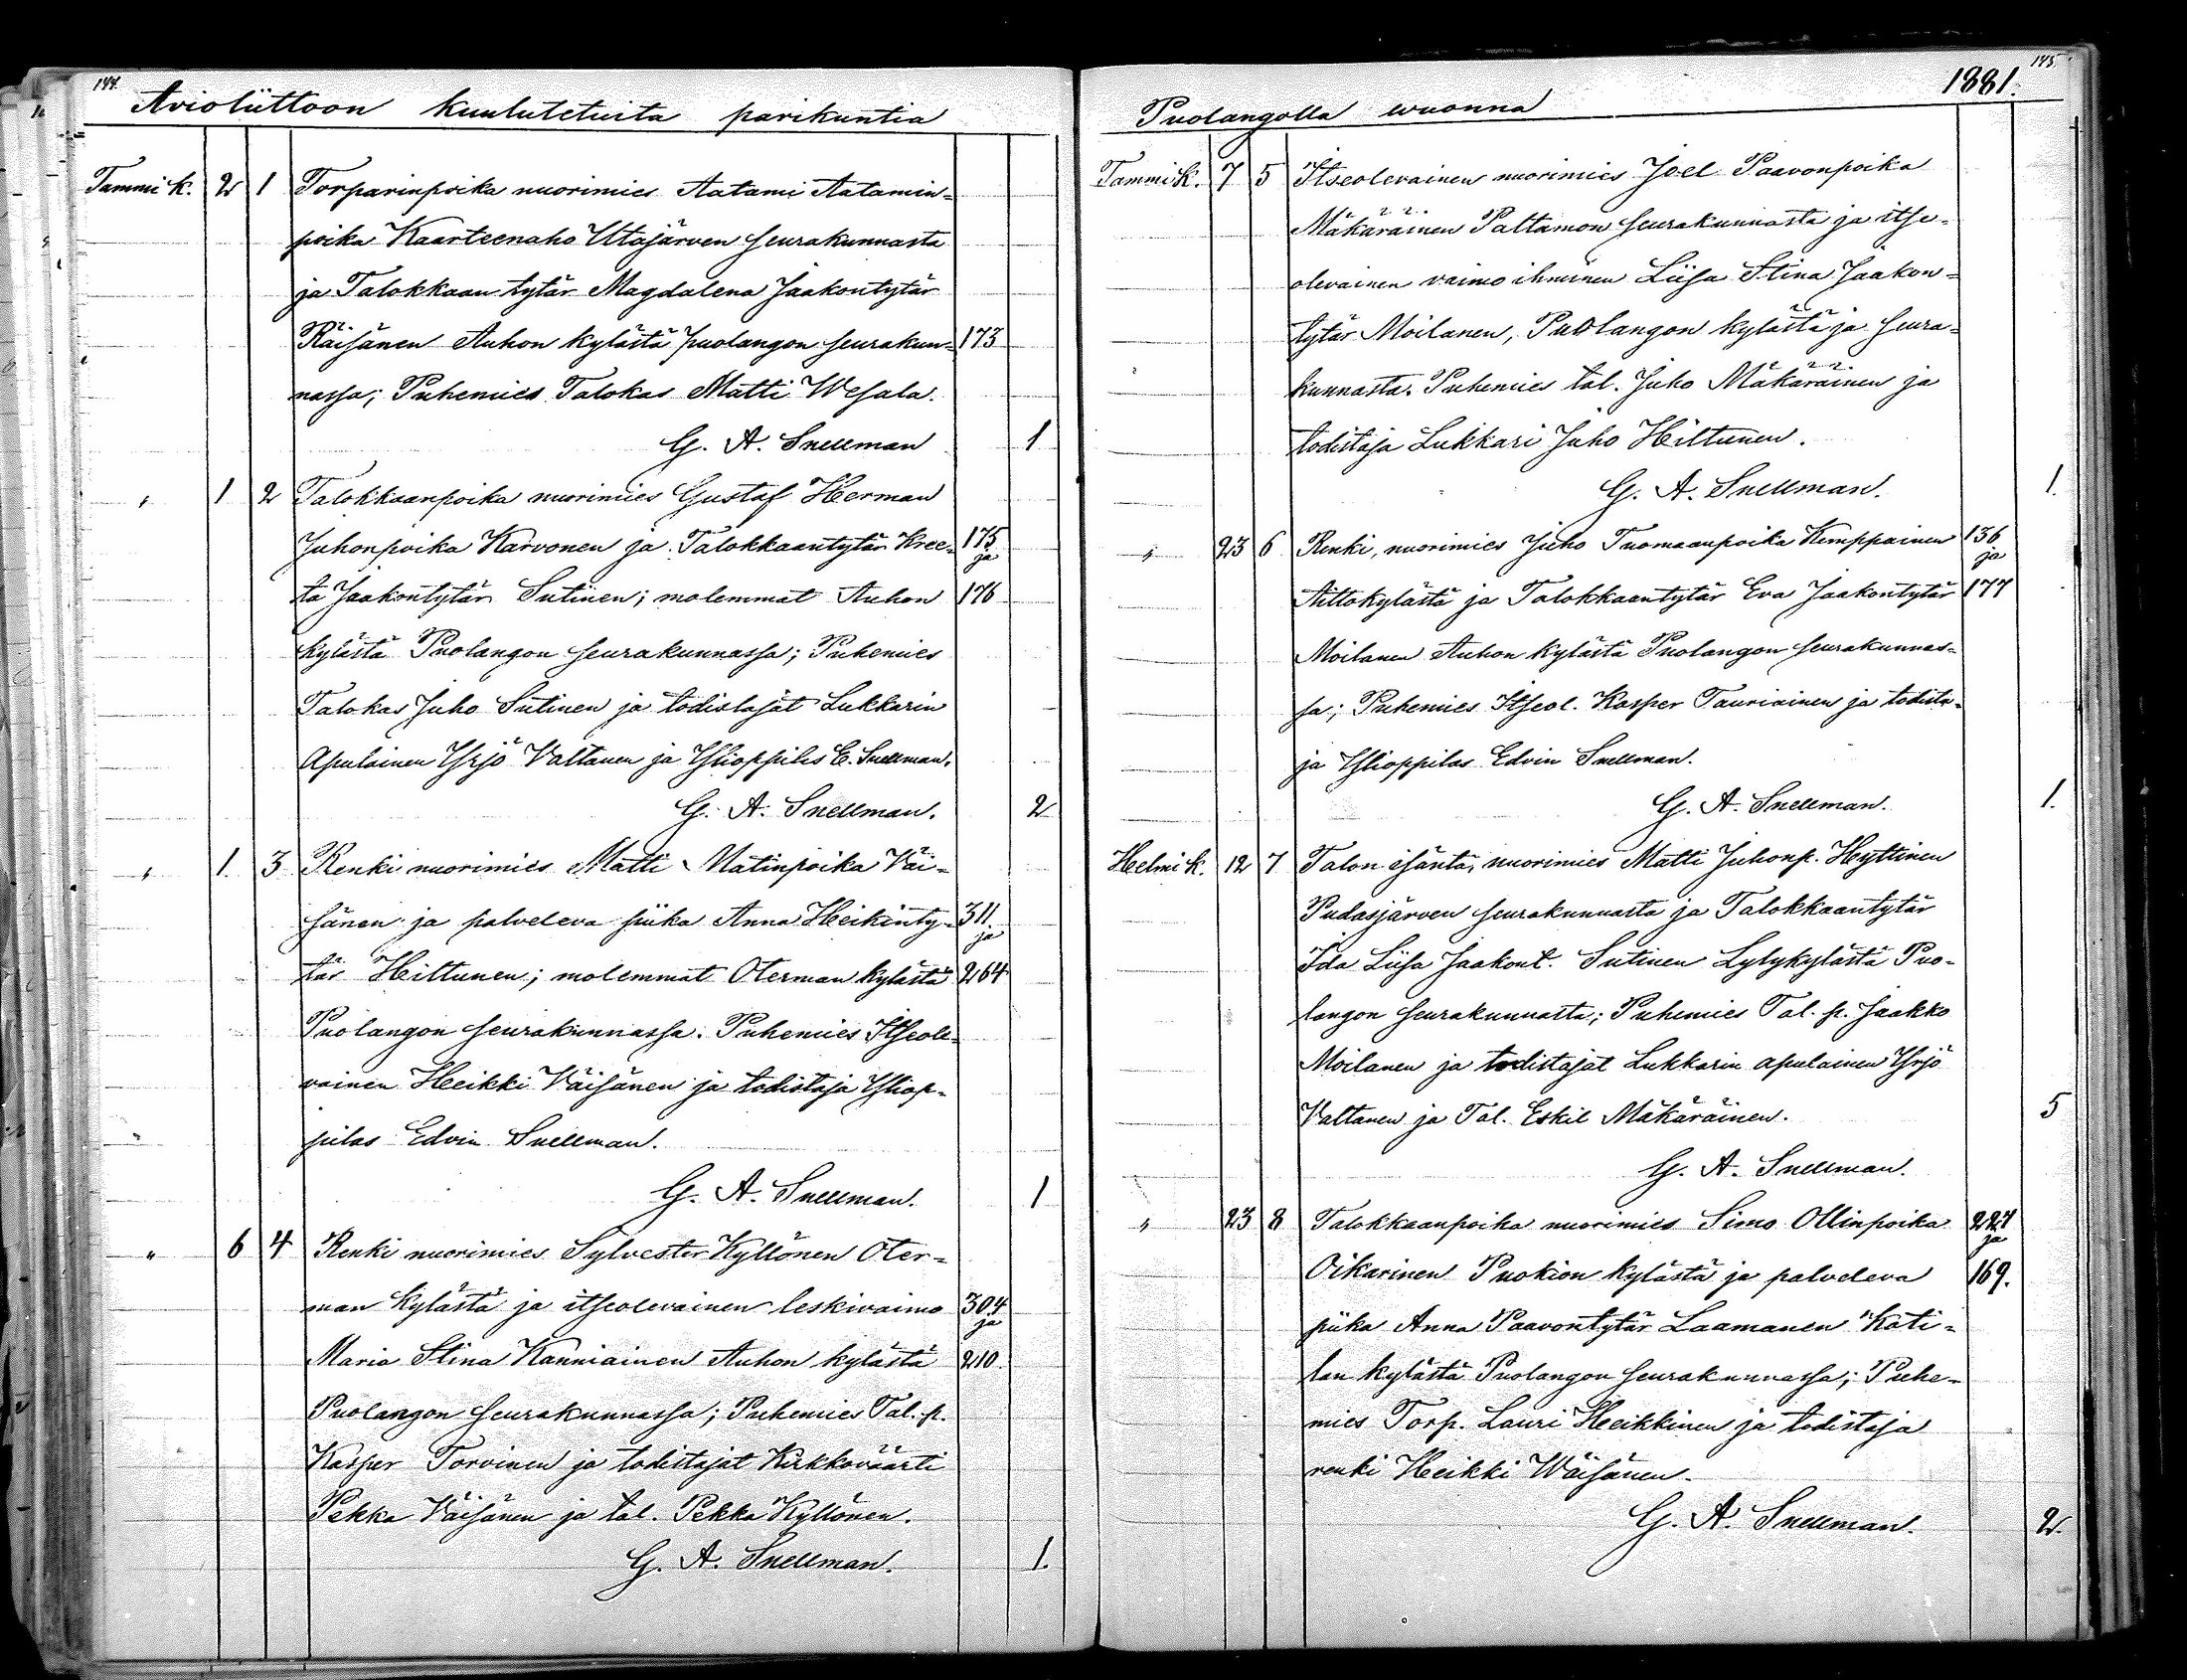 144.
Avioliittoon kuulutetuita parikuntia
Tammik. 2 1 Torparinpoika nuorimies Aatami Aatamin-
poika Kaarteenaho Utajärven seurakunnasta
ja Talokkaan tytär Magdalena Jaakontytär
Räisänen Auhon kylästä puolangon seurakun- 173
nassa; Puhemies Talokas Matti Wesala.
G. A. Snellman 1
" 1 2 Talokkaanpoika nuorimies Gustaf Herman
Juhonpoika Karvonen ja Talokkaantytär Kree- 175 ja
ta Jaakontytär Sutinen; molemmat Auhon 176
kylästä Puolangon seurakunnassa; Puhemies
Talokas Juho Sutinen ja todistajat Lukkarin
Apulainen Yrjö Valtanen ja Ylioppilas E. Snellman.
G. A. Snellman. 2
" 1. 3 Renki nuorimies Matti Matinpoika Väi-
sänen ja palveleva piika Anna Heikinty- 311. ja
tär Heittunen; molemmat Oterman kylästä 264
Puolangon seurakunnassa. Puhemies Itseole-
vainen Heikki Väisänen ja todistaja Yliop-
pilas Edvin Snellman.
G. A. Snellman. 1
" 6 4 Renki nuorimies Sylvester Kyllönen Oter-
man kylästä ja itseolevainen leskivaimo 304 ja
Maria Stina Kanniainen Auhon kylästä 210.
Puolangon seurakunnassa; Puhemies Tal. p.
Kasper Torvinen ja todistajat Kirkkoväärti
Pekka Väisänen ja tal. Pekka Kyllönen.
G. A. Snellman. 1.
145.
Puolangolla wuonna 1881.
Tammik. 7 5 Itseolevainen nuorimies Joel Paavonpoika
Mäkäräinen Paltamon seurakunnasta ja itse-
olevainen vaimo ihminen Liisa Stina Jaakon-
tytär Moilanen, Puolangon kylästä ja seura-
kunnasta. Puhemies tal. Juho Mäkäräinen ja
todistaja Lukkari Juho Hiltunen.
G. A. Snellman. 1.
" 23 6 Renki, nuorimies Juho Tuomaanpoika Kemppainen 136 ja
Aittokylästä ja Talokkaantytär Eva Jaakontytär 177
Moilanen Auhon kylästä Puolangon seurakunnas-
sa; Puhemies Itseol. Kasper Tauriainen ja todista-
ja Ylioppilas Edvin Snellman.
G. A. Snellman. 1.
Helmik. 12 7 Talon isäntä, nuorimies Matti Juhonp. Hyttinen
Pudasjärven seurakunnasta ja Talokkaantytär
Ida Liisa Jaakont. Sutinen Lylykylästä Puo-
langon seurakunnasta; Puhemies Tal. p. Jaakko
Moilanen ja todistajat Lukkarin apulainen Yrjö
Valtanen ja Tal. Eskil Mäkäräinen. 5
G. A. Snellman.
" 23 8 Talokkaanpoika nuorimies Simo Ollinpoika 227 ja
Oikarinen Puokion kylästä ja palveleva 169.
piika Anna Paavontytär Laamanen Koti-
lan kylästä Puolangon seurakunnassa; Puhe-
mies Torp. Lauri Heikkinen ja todistaja
renki Heikki Wäisänen.
G. A. Snellman. 2.